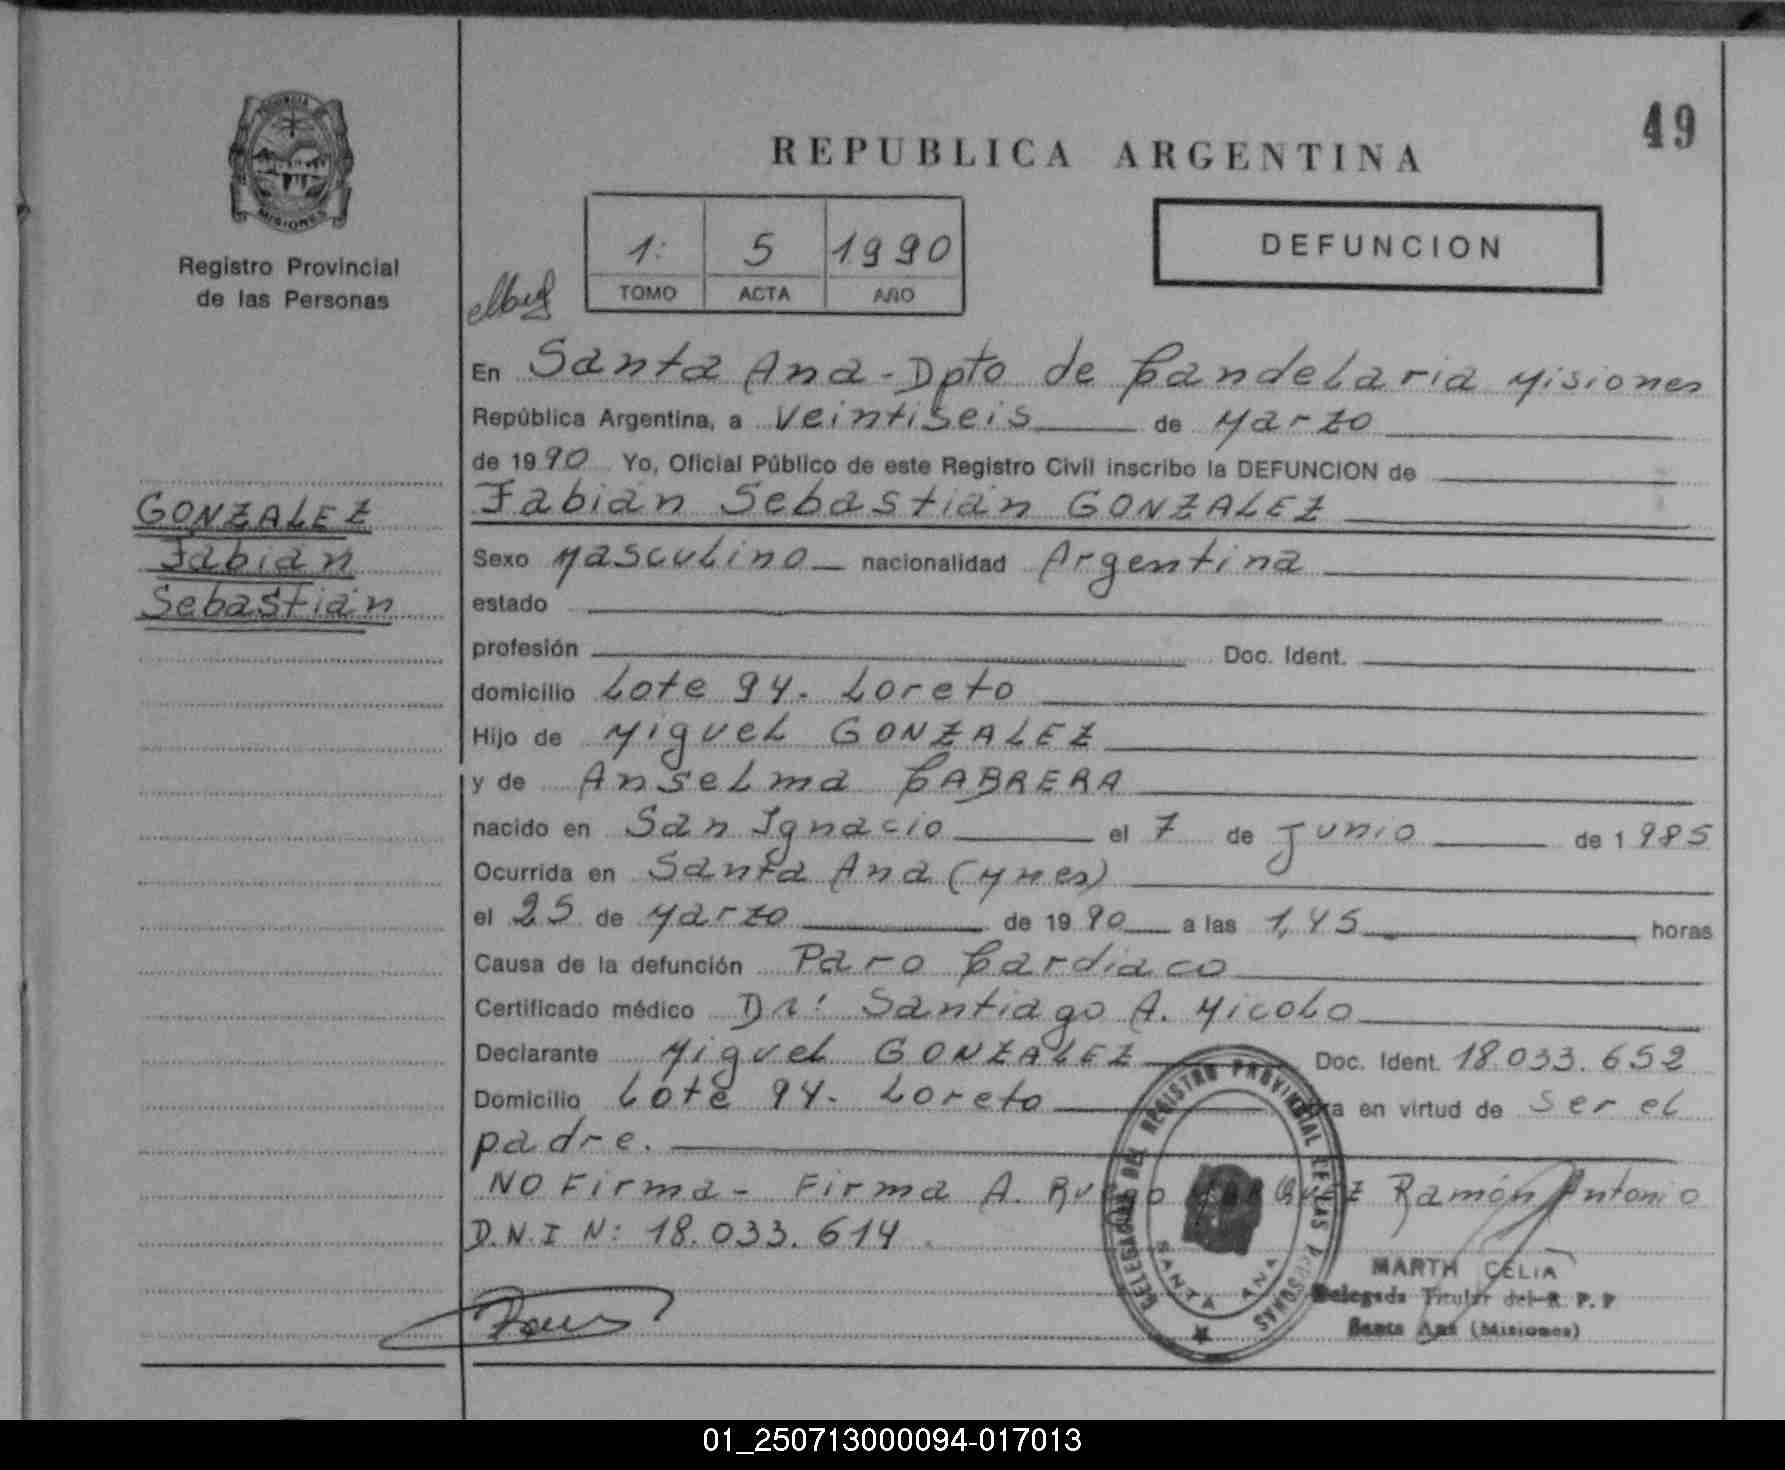 PROVINCIA
MISIONES
Registro Provincial
de las Personas
49
REPUBLICA ARGENTINA
1: 5 1990
TOMO ACTA AÑO
DEFUNCION
En Santa Ana - Dpto de Candelaria Misiones
República Argentina, a veintiseis de Marzo
de 1990 Yo, Oficial Público de este Registro Civil inscribo la DEFUNCION de
Fabián Sebastián GONZALEZ
GONZALEZ
Fabián
Sebastián
Sexo Masculino nacionalidad Argentina
estado
profesión Doc. Ident.
domicilio Lote 94. Loreto
Hijo de Miguel GONZALEZ
y de Anselma CABRERA
nacido en San Ignacio el 7 de Junio de 1985
Ocurrida en Santa Ana (Mnes)
el 25 de Marzo de 1990 a las 1,45 horas
Causa de la defunción Paro Cardiaco
Certificado médico Dr: Santiago A. Micolo
Declarante Miguel GONZALEZ Doc. Ident. 18.033.652
Domicilio Lote 94. Loreto en virtud de ser el
padre.
NO Firma - Firma A. Ruego Ramón Antonio
D.N.I N: 18.033.614
DELEGACION DEL REGISTRO PROVINCIAL DE LAS PERSONAS
SANTA ANA
MARTH CELIA
Delegada Titular del R. P. P
Santa Ana (Misiones)
01_250713000094-017013